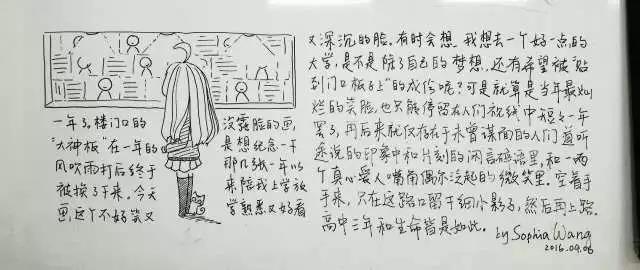 一年了。楼门口的
"大神板"在一年的
风吹雨打后终于
被换了下来。今天
画这个不好笑又
没露脸的画，
是想纪念一下
那几张一年以
来陪我上学放
学熟悉又好看
又深沉的脸。有时会想，我想去一个好一点的
大学，是不是除了自己的梦想，还有希望被"贴
到门口板子上"的成份呢？可是就算是当年最灿
烂的笑脸，也只能停留在人们视线中短短一年
罢了，再后来就仅存在于未曾谋面的人们道听
途说的印象中和片刻的闲言碎语里，和一两
个真心爱人嘴角偶尔泛起的微笑里。空着手
来，只在这路口留下细小影子，然后再上路。
高中三年和生命皆是如此。 by Sophia Wang
2016.09.06